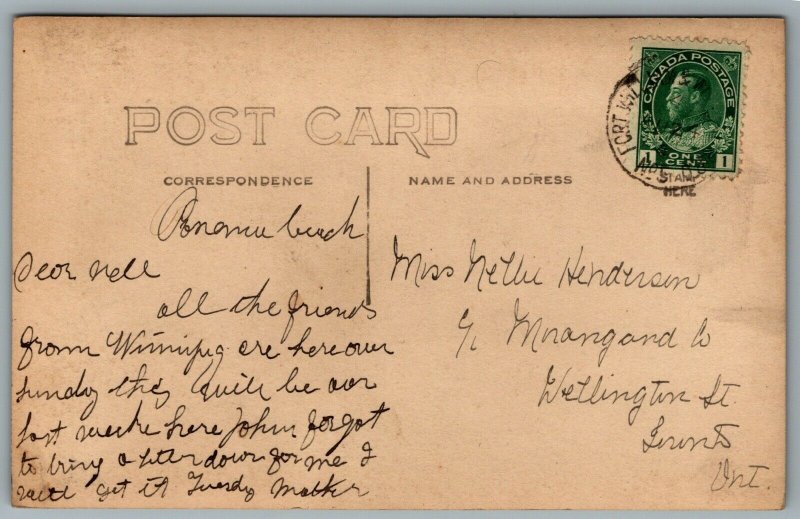 POST CARD
CORRESPONDENCE
NAME AND ADDRESS
CANADA POSTAGE
1 ONE CENT 1
FORT WIL
STAMP
HERE
beach
Dear nell
all the friends
from Winnipeg are here over
sunday they will be our
last weeke here John forgot
to bring a letter down for me I
will get it Tuesdy Mother
Miss Nellie Henderson
c/o Co
Wellington St.
Toronto
Ont.